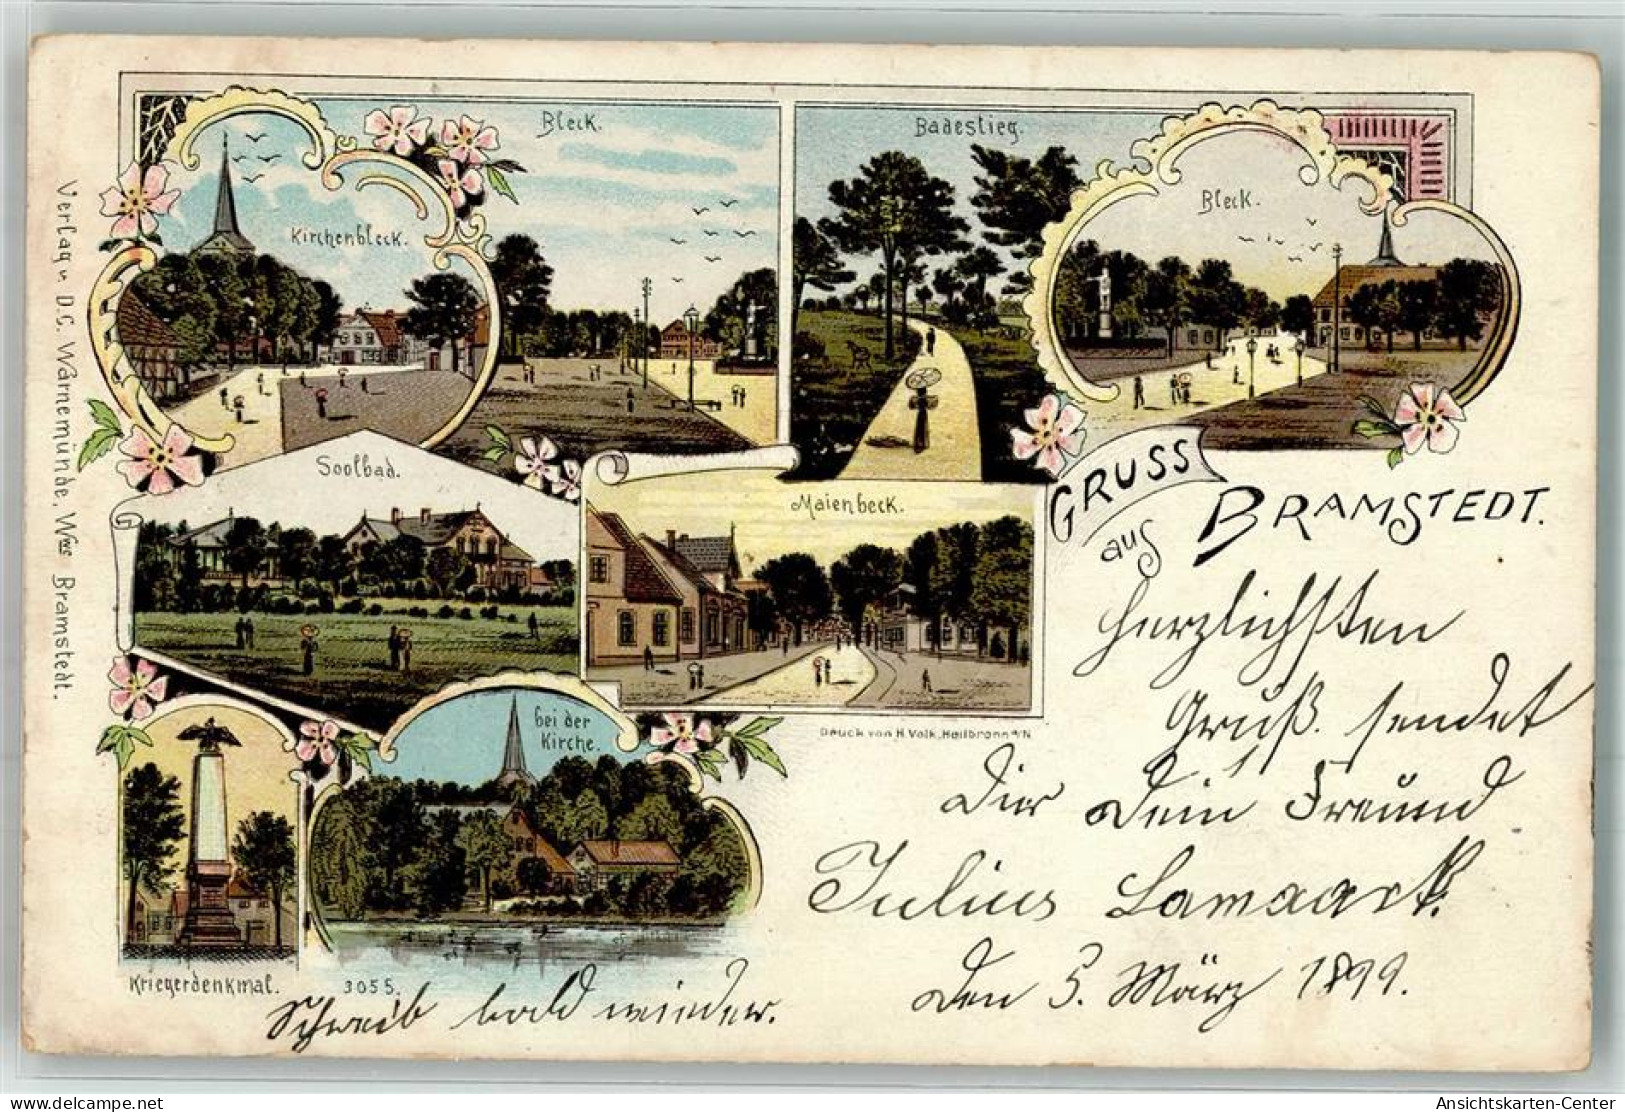 Bleck.
Badestieg.
Kirchenbleck.
Bleck.
Verlag v. D.C. Warnemünde, Wwe Bramstedt.
Soolbad.
Maienbeck.
GRUSS
aus
BRAMSTEDT.
bei der
Kirche.
Druck von H. Volk, Heilbronn a/N
Kriegerdenkmal.
3055.
herzlichsten
Gruß. sendet
Dir Dein Freund
Julius
Den 5. März 1899.
Schreib bald wieder.
Ansichtskarten-Center